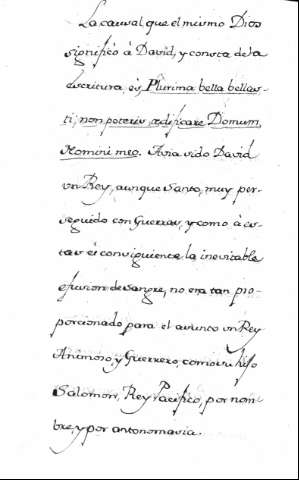 La causal que el mismo Dios
significò à David, y consta de la
escritura es, Plurima bella bellas-
ti, non poteris ædificare Domum,
Nomini meo. Avia sido David
un Rey, aunque Santo, muy per-
seguido con Guerras, y como à es-
tas es consiguiente la inevitable
efusion de sangre, no era tan pro-
porcionado para el asunto un Rey
Animoso, y Guerrero, como su hijo
Salomon, Rey Pacifico, por nom-
bre, y por antonomasia.